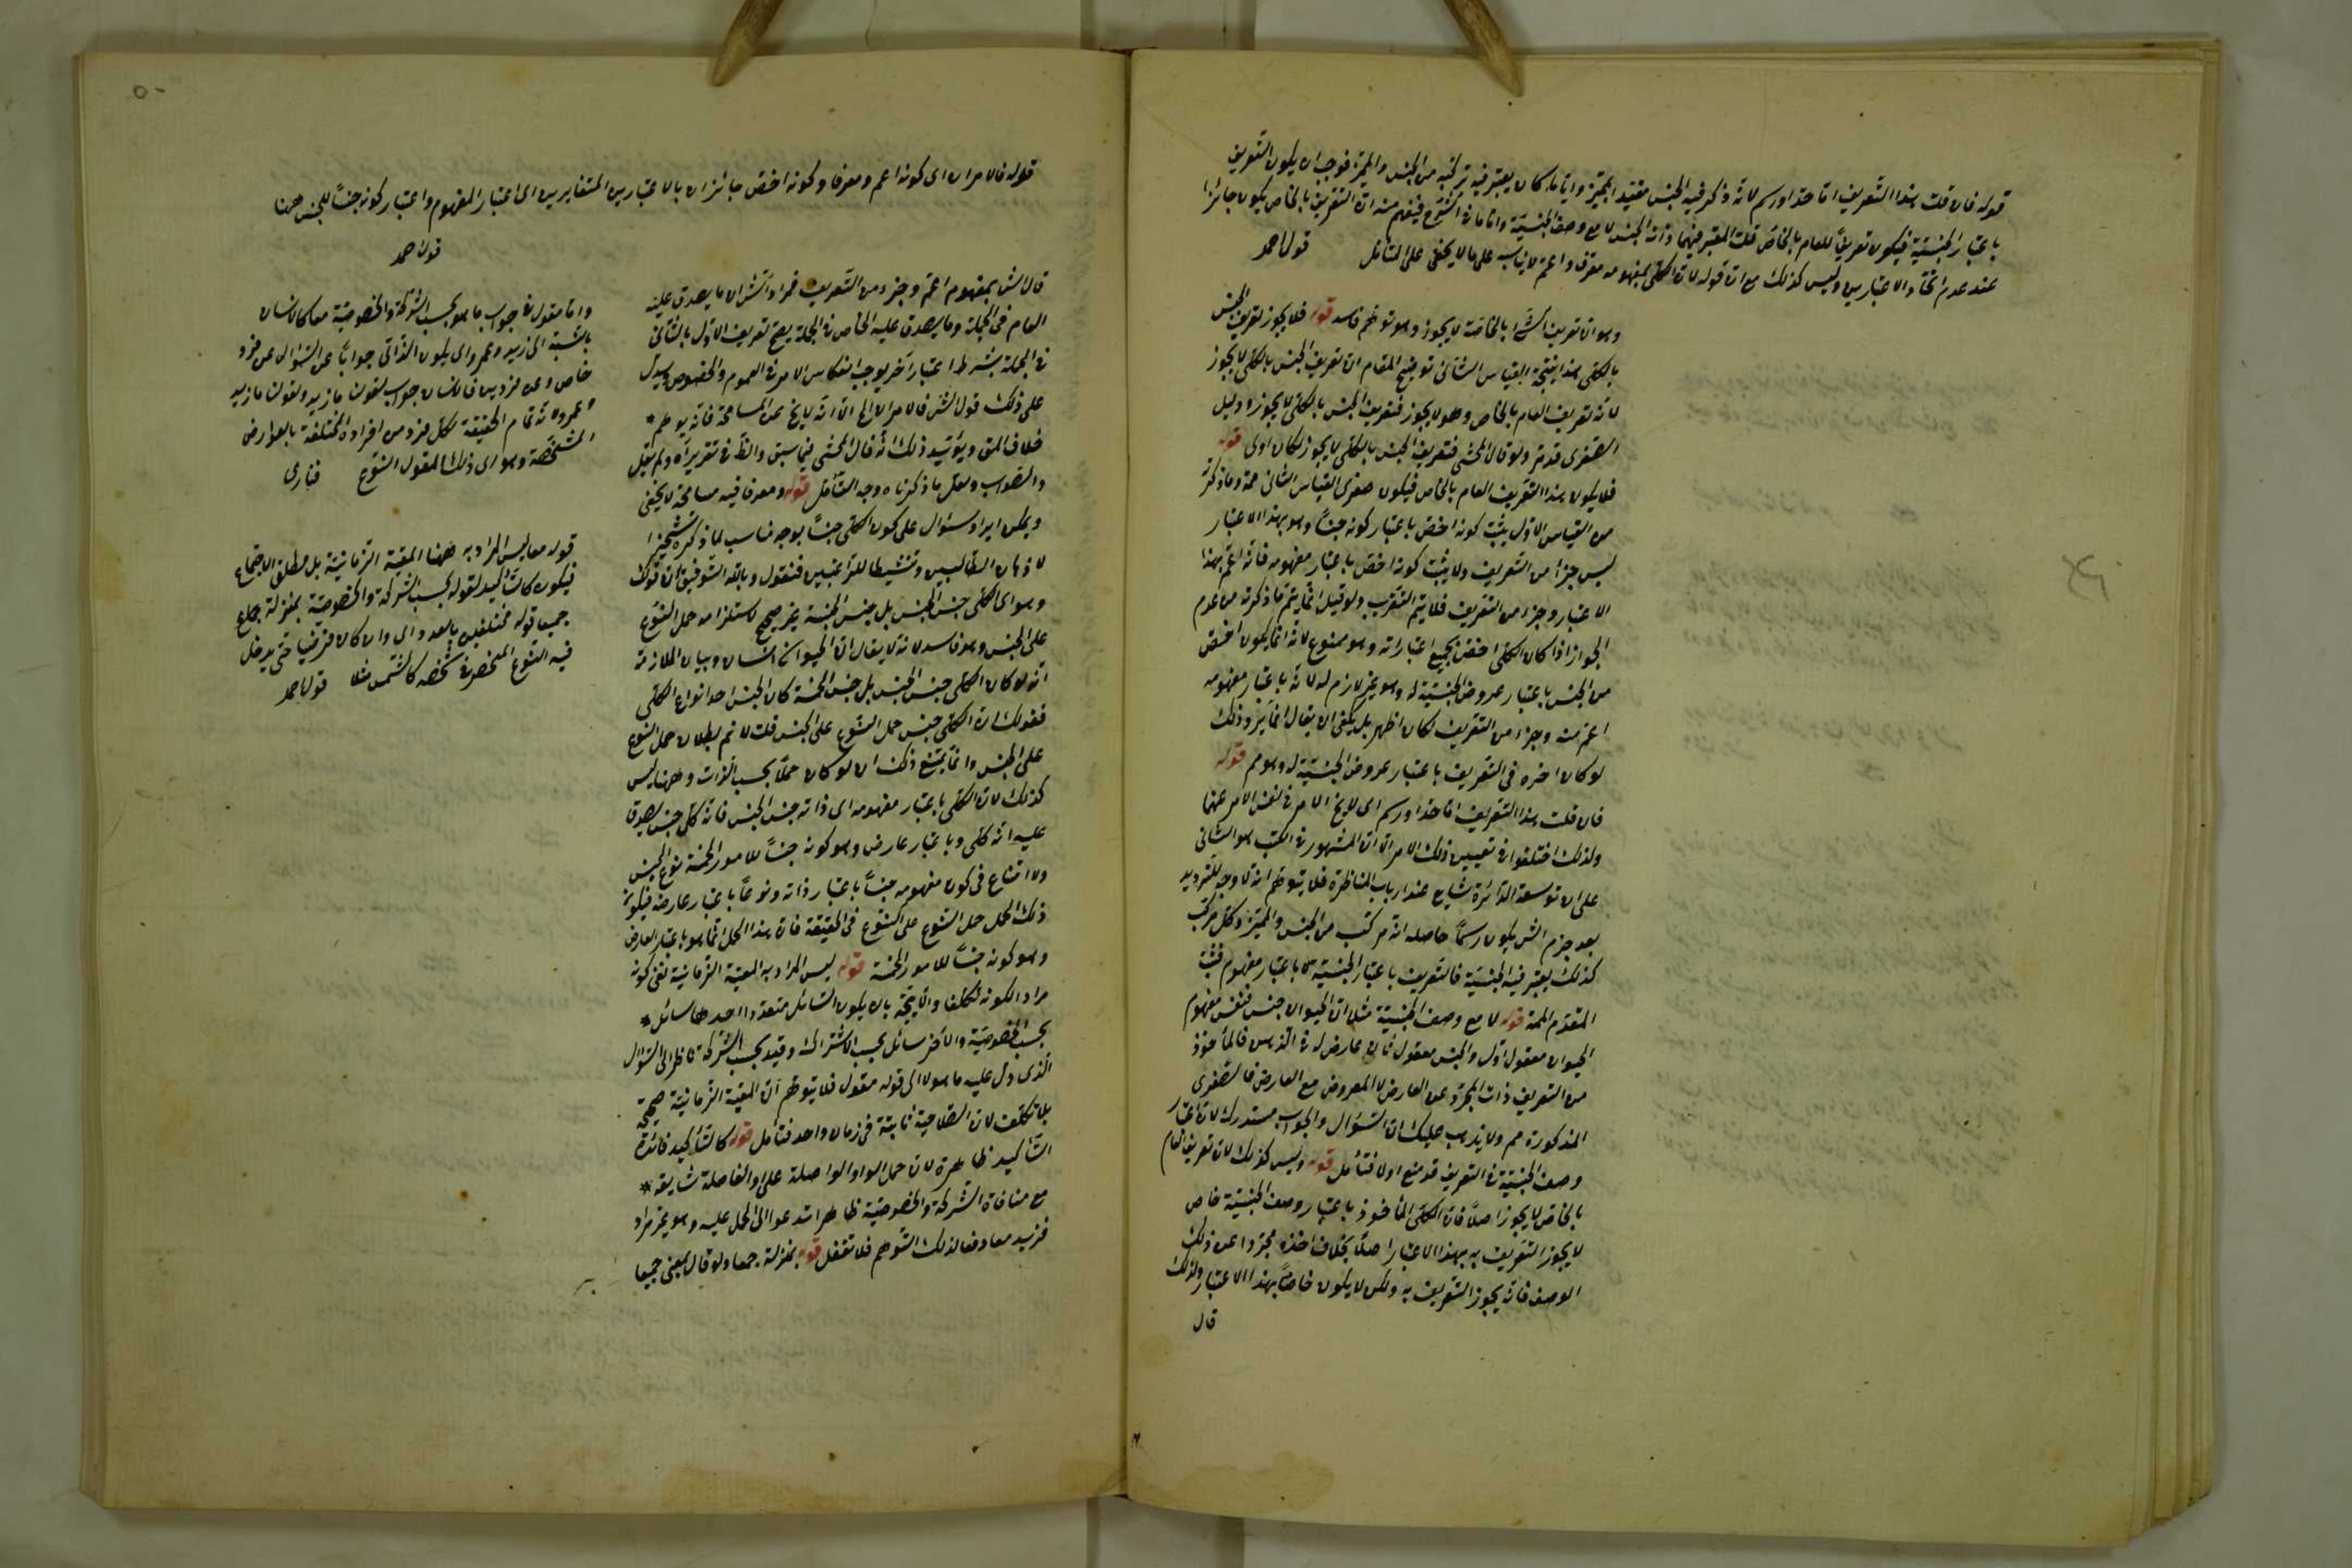 قوله فان قلت هذا التعريف اما حد او رسم لانه ذكر فيه الجنس مقيد المميز وايا ما كان يعتبر فيه تركبه من الجنس والمميز فوجب ان يكون التعريف
باعتبار الجنسية فيكون تعريفا للعام بالخاص قلت المعتبر فيهما ذات الجنس لا مع وصف الجنسية واما ما في الشرح فيفهم منه ان التعريف بالخاص يكون جائزا
عند عدم اتحاد الاعتبارين وليس كذلك مع ان قوله لان الكلى بمفهومه معرف واعم لا يناسب على ما لا يخفى على المتأمل قول احمد
وهو ان تعريف الشئ بالخاصة لا يجوز وهو توهم فاسد قوله فلا يجوز تعريف الجنس
بالكلى هذا نتيجة القياس الثانى توضيح المقام ان تعريف الجنس بالكلى لا يجوز
لانه تعريف العام بالخاص وهو لا يجوز فتعريف الجنس بالكلى لا يجوز ودليل
الصغرى قد مر ولو قال المحشى فتعريف الجنس بالكلى لا يجوز لكان اولى قوله
فلا يكون هذا التعريف العام بالخاص فيكون صغرى القياس الثانى مم وما ذكرته
من القياس الاول يثبت كونه اخص باعتبار كونه جنسا وهو بهذا الاعتبار
ليس جزأ من التعريف ولا يثبت كونه اخص باعتبار مفهومه فانه اعم بهذا
الاعتبار وجزء من التعريف فلا يتم التقريب ولو قيل انما يتم ما ذكرته من عدم
الجواز اذا كان الكلى اخص بجميع اعتباراته وهو ممنوع لانه انما يكون اخص
من الجنس باعتبار عروض الجنسية له وهو غير لازم له لانه باعتبار مفهومه
اعم منه وجزء من التعريف لكان اظهر بل يكفى ان يقال انما يلزم ذلك
لو كان اخذه فى التعريف باعتبار عروض الجنسية له وهو مم قوله
فان قلت هذا التعريف اما حد او رسم اى لا يخ الامر فى نفس الامر عنهما
ولذلك اختلفوا فى تعيين ذلك الامر الا ان المشهور فى الكتب هو الثانى
على ان توسعة الدائرة شايع عند ارباب المناظرة فلا يتوهم انه لا وجه للترديد
بعد جزم الش بكونه رسما حاصله انه مركب من الجنس والمميز وكل مركب
كذلك يعتبر فيه الجنسية فالتعريف باعتبار الجنسية لا باعتبار مفهوم فثبت
المقدم الممنوعة قوله لا مع وصف الجنسية مثلا ان الحيوان جنس فنفس مفهوم
الحيوان معقول اول والجنس معقول ثان عارض له فى الذهن فالمأخوذ
من التعريف ذات المجرد عن العارض لا المعروض مع العارض فالصغرى
المذكورة مم ولا يذهب عليك ان السؤال والجواب مستدرك لان اعتبار
وصف الجنسية فى التعريف قد منع اولا فتأمل قوله وليس كذلك لان تعريف العام
بالخاص لا يجوز اصلا فان الكلى المأخوذ باعتبار وصف الجنسية خاص
لا يجوز التعريف به بهذا الاعتبار اصلا بخلاف اخذه مجردا عن ذلك
الوصف فانه يجوز التعريف به ولكن لا يكون خاصا بهذا الاعتبار ولذلك
قال
٥٠
قوله فالامران اى كونه اعم ومعرفا وكونه اخص جائزان بالاعتبارين المتغايرين اى اعتبار المفهوم واعتبار كونه جنسا للجنس ههنا
قول احمد
قال الش بمفهوم اعم وجزء من التعريف فمراد الش ان ما يصدق عليه
العام فى الجملة وما يصدق عليه الخاص فى الجملة يصح تعريف الاول بالثانى
فى الجملة بشرط اعتبار آخر يوجب انعكاس الامر فى العموم والخصوص ويدل
على ذلك قول الش فالامران الخ الا انه لا يخ عن المسامحة فانه يوهم
خلاف المق ويؤيد ذلك انه قال المحشى فيما سبق والظ فى تقريره ولم يقل
والصواب ولعل ما ذكرناه وجه التأمل قوله ومعرفا فيه مسامحة لا يخفى
ويمكن ايراد سئوال على كون الكلى جنسا بوجه مناسب لما ذكره تشحيذا
لاذهان الطالبين وتنشيطا للراغبين فنقول وبالله التوفيق ان قولك
وهو اى الكلى جنس الجنس بل جنس الخمسة غير صحيح لاستلزامه حمل النوع
على الجنس وهو فاسد لانه لا يقال ان الحيوان انسان وبيان الملازمة
انه لو كان الكلى جنس الجنس بل جنس الخمسة كان الجنس احد انواع الكلى
فقولك ان الكلى جنس حمل النوع على الجنس قلت لا نم بطلان حمل النوع
على الجنس وانما يمتنع ذلك ان لو كان حملا بحسب الذات وههنا ليس
كذلك لان الكلى باعتبار مفهومه اى ذاته جنس الجنس فانه كلى جنس لصدق
عليه انه كلى وباعتبار عارض وهو كونه جنسا للامور الخمسة نوع الجنس
ولا امتناع فى كون مفهومه جنسا باعتبار ذاته ونوعا باعتبار عارضه فيكون
ذلك الحمل حمل النوع على النوع فى الحقيقة فان هذا الحمل انما هو باعتبار العارض
وهو كونه جنسا للامور الخمسة قوله ليس المراد به المعية الزمانية نفى كونه
مراد لكونه تكلفا والا يتجه بان يكون السائل متعددا احدهما سائل
بحسب الخصوصية والآخر سائل بحسب الاشتراك وقيد بحسب الشركة ناظر الى السؤال
الذى دل عليه ما هو لا الى قوله مقول فلا يتوهم ان المعية الزمانية صحيحة
بلا تكلف لان الصلاحية ثابتة فى زمان واحد فتأمل قوله كالتأكيد فائدة
التأكيد ظاهرة لان حمل الواو الواصلة على او الفاصلة شايعة
مع منافاة الشركة والخصوصية ظاهرا تدعو الى الحمل عليه وهو غير مراد
فزيد معا دفعا لذلك التوهم فلا تغفل قوله بمنزلة جمعا ولو قال بمعنى جميعا
واما مقول فى جواب ما هو بحسب الشركة والخصوصية معا كالانسان
بالنسبة الى زيد وعمرو اى يكون الذاتى جوابا عن السؤال عن فرد
خاص وعن فردين فالانسان جواب لقولنا ما زيد ولقولنا ما زيد
وعمرو لانه تمام الحقيقة لكل فرد من افراده المختلفة بالعوارض
المشخصة وهو اى ذلك المقول النوع فنارى
قوله معا ليس المراد به ههنا المعية الزمانية بل مطلق الاجتماع
فيكون كالتأكيد لقوله بحسب الشركة والخصوصية بمنزلة جمع
جميعا قوله مختلفين بالعدد اى وان كان فرضيا حتى يدخل
فيه النوع المنحصر فى شخصه كالشمس مثلا قول احمد